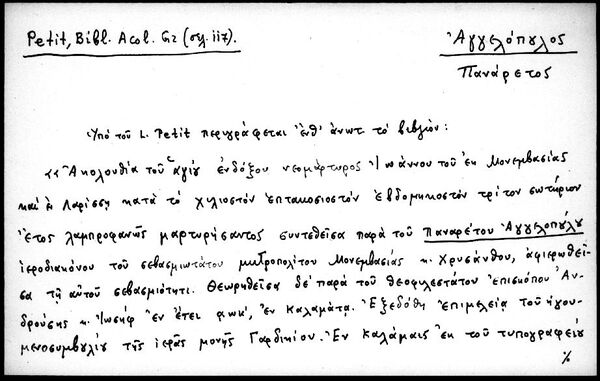 Petit, Bibl. Acol. Gr (σελ. 117).
Ἀγγελόπουλος
Πανάρετος
Ὑπό τοῦ L. Petit περιγράφεται ἔνθ' ἀνωτ. τό βιβλίον:
«Ἀκολουθία τοῦ ἁγίου ἐνδόξου νεομάρτυρος Ἰωάννου τοῦ ἐκ Μονεμβασίας
καί ἐν Λαρίσσῃ κατά τό χιλιοστόν ἑπτακοσιοστόν ἑβδομηκοστόν τρίτον σωτήριον
ἔτος λαμπροφανῶς μαρτυρήσαντος συντεθεῖσα παρά τοῦ Παναρέτου Ἀγγελοπούλου
ἱεροδιακόνου τοῦ σεβασμιωτάτου μητροπολίτου Μονεμβασίας κ. Χρυσάνθου, ἀφιερωθεῖ-
σα τῇ αὐτοῦ σεβασμιότητι. Θεωρηθεῖσα δέ παρά τοῦ θεοφιλεστάτου ἐπισκόπου Ἀν-
δρούσης κ. Ἰωσήφ ἐν ἔτει αωκ', ἐν Καλαμάτᾳ. Ἐξεδόθη ἐπιμελείᾳ τοῦ ἡγου-
μενοσυμβουλίου τῆς ἱερᾶς μονῆς Γαρδικίου. Ἐν Καλάμαις ἐκ τοῦ τυπογραφείου
%